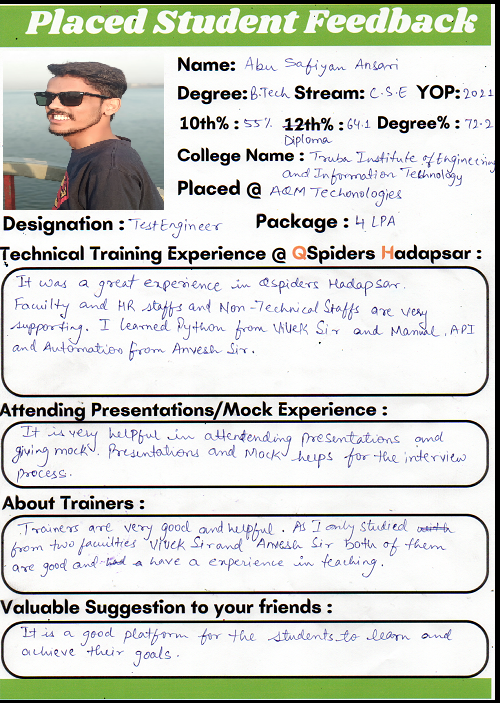 Placed Student Feedback
Name: Abu Safiyan Ansari
Degree: B.Tech Stream: C.S.E YOP: 2021
10th% : 55% 12th% : 64.1 Degree% : 72.2
Diploma
College Name : Truba Institute of Engineering
and Information Technology
Placed @ AQM Techonologies
Designation : Test Engineer Package : 4 LPA
Technical Training Experience @ QSpiders Hadapsar :
It was a great experience in Qspiders Hadapsar.
Faculity and HR staffs and Non-Technical Staffs are very
supporting. I learned Python from Vivek Sir and Manual, API
and Automation from Anvesh Sir.
Attending Presentations/Mock Experience :
It is very helpful in attentending presentations and
giving mock. Presentations and Mock helps for the interview
process.
About Trainers :
Trainers are very good and helpful. As I only studied with
from two faculties Vivek Sir and Anvesh Sir Both of them
are good and had a have a experience in teaching.
Valuable Suggestion to your friends :
It is a good platform for the students to learn and
achieve their goals.